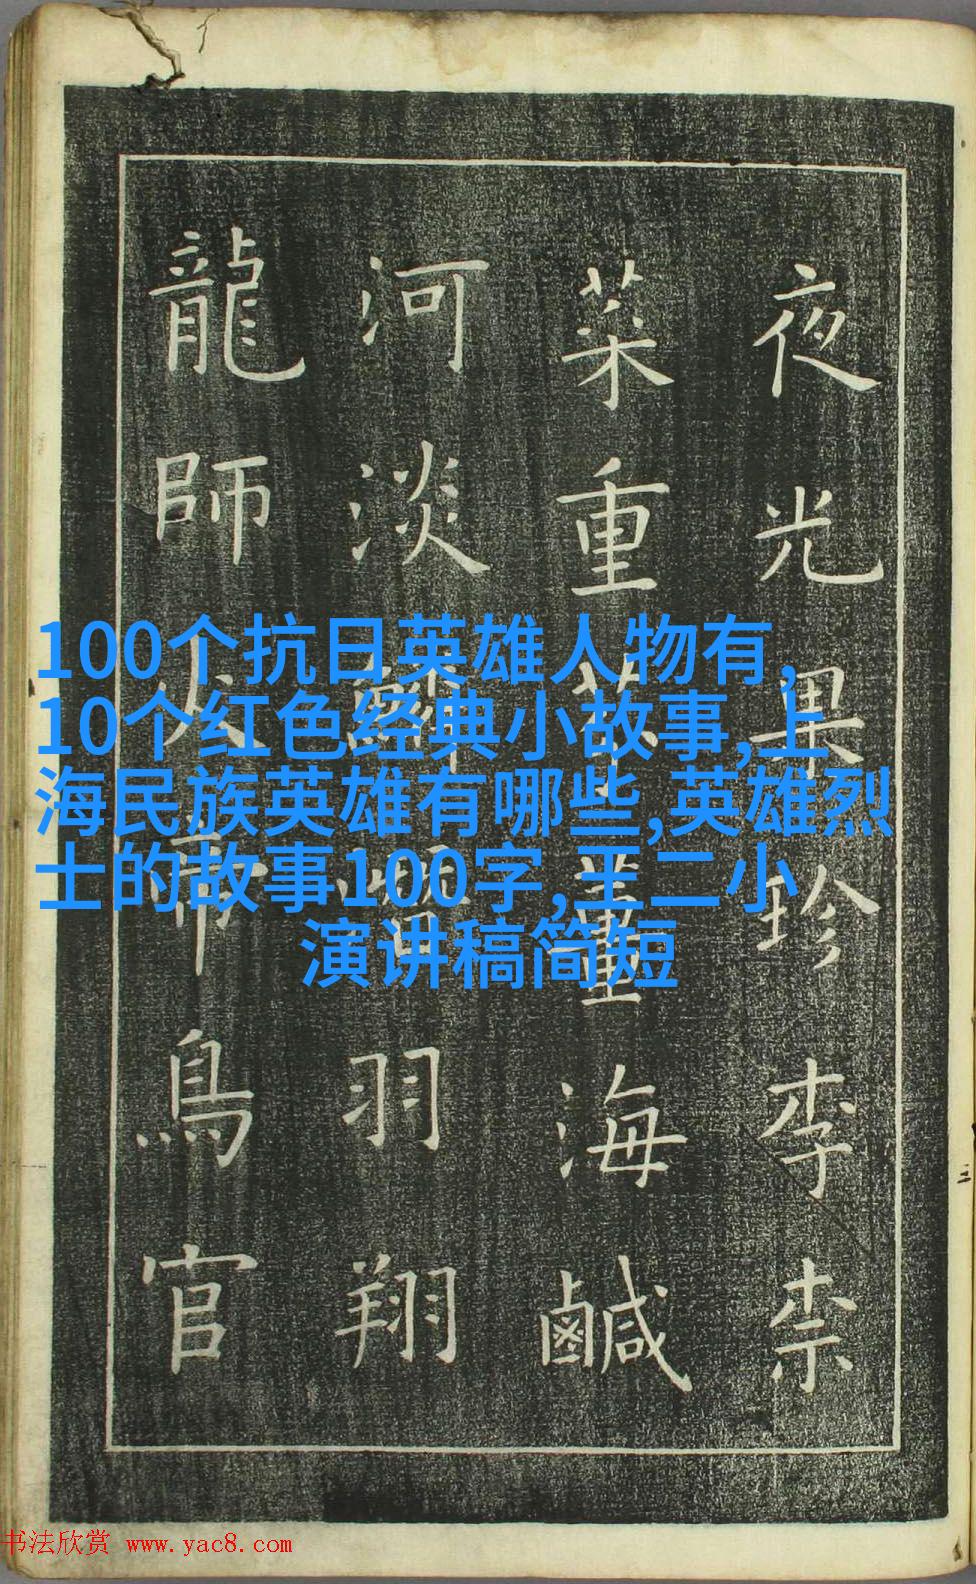 夜光果珍李柰
菜重芥薑海鹹
河淡鱗潛羽翔
龍師火帝鳥官
100个抗日英雄人物有,
10个红色经典小故事,上
海民族英雄有哪些,英雄烈
士的故事100字,王二小
演讲稿简短
书法欣赏 www.yac8.com